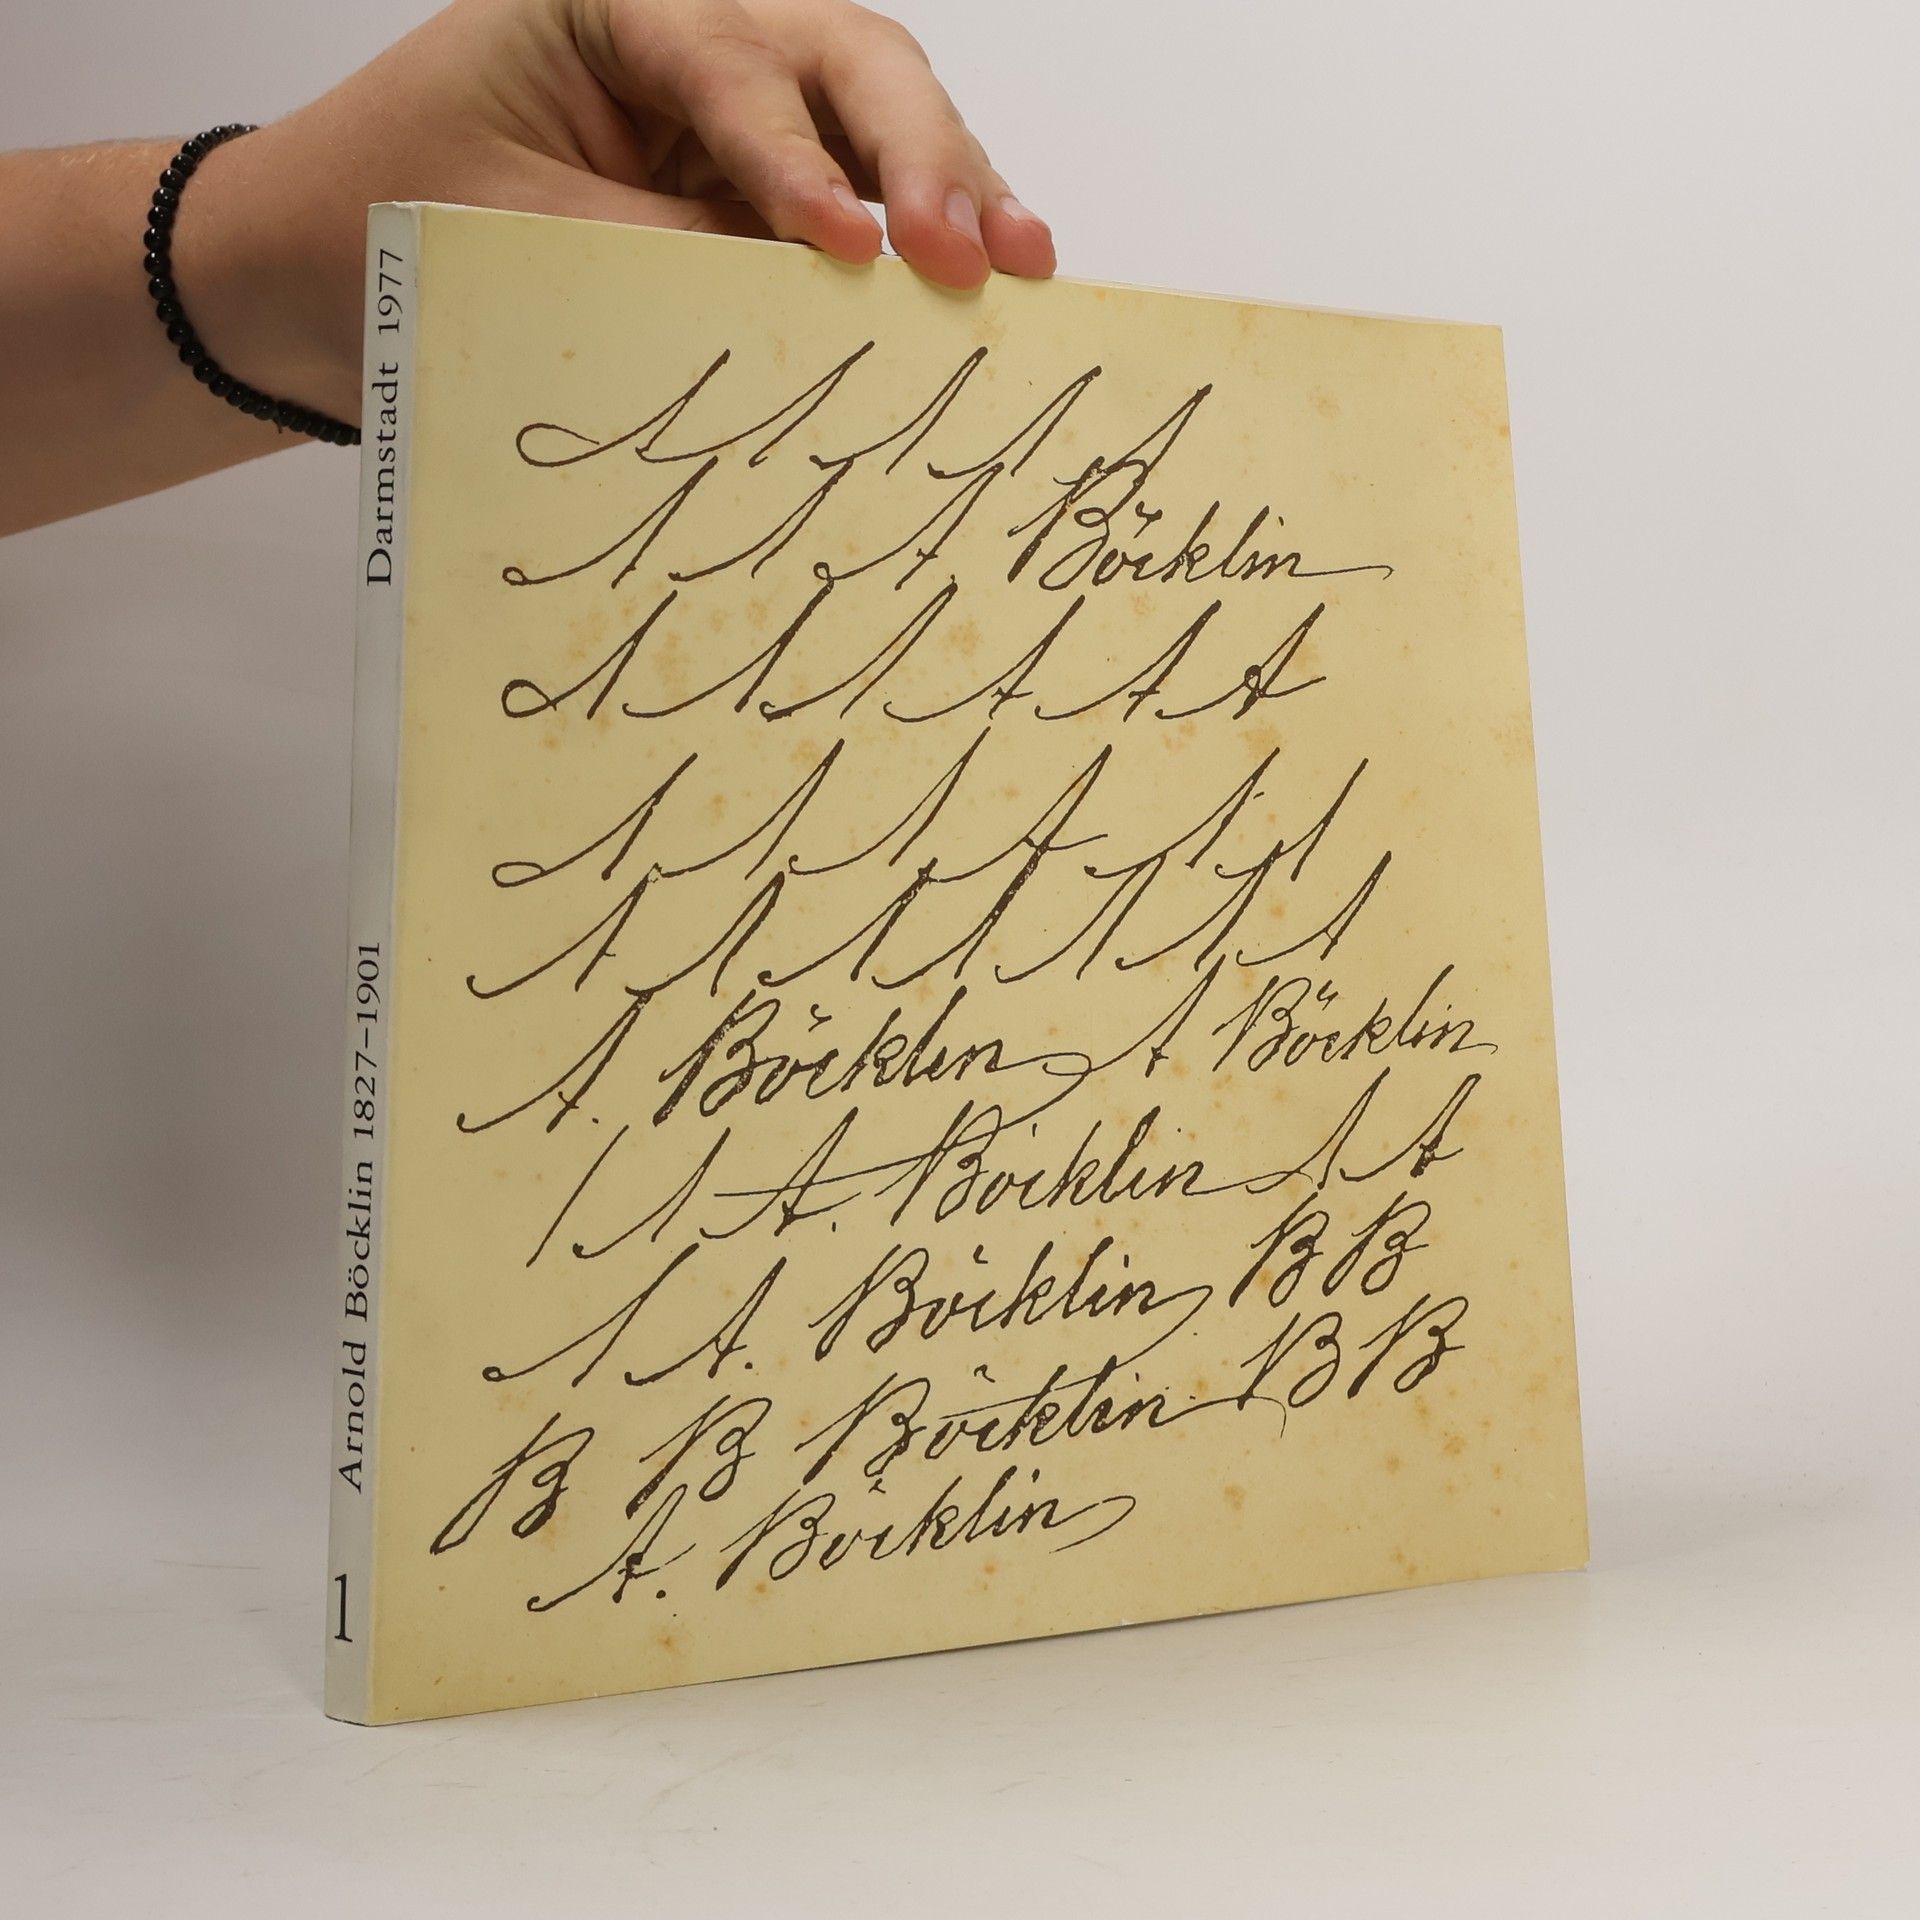 Arnold Böcklin 1827–1901 Darmstadt 1977
1
A A A A A
A A A Böcklin
A A A A A A
A A A A A A
A A A A A A A
A. Böcklin A Böcklin
A A. Böcklin A A
A A. Böcklin B B
B B Böcklin B B
A. Böcklin